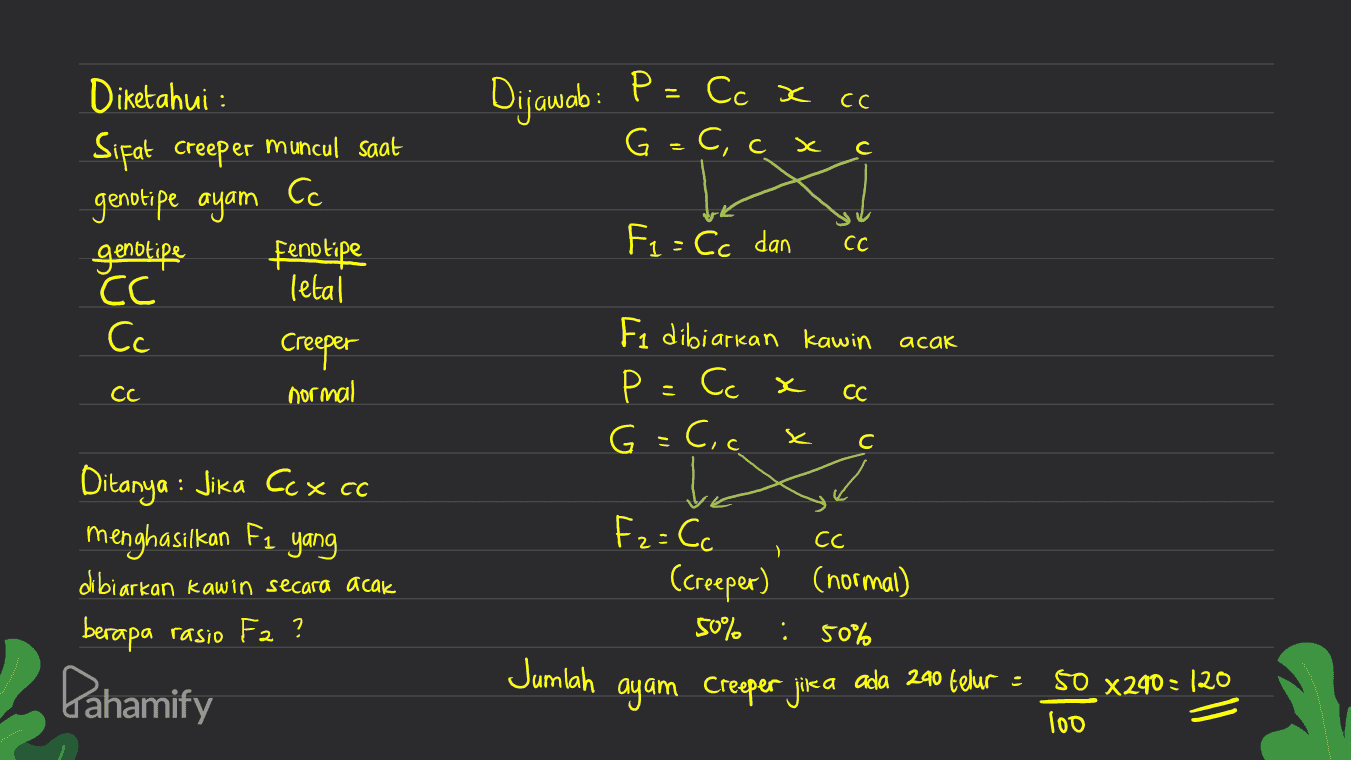 Diketahui :
Sifat creeper muncul saat
genotipe ayam Cc
genotipe fenotipe
CC letal
Cc creeper
cc normal
Ditanya : Jika Cc x cc
menghasilkan F1 yang
dibiarkan kawin secara acak
berapa rasio F2 ?
Dijawab : P = Cc x cc
G = C, c x c
F1 = Cc dan cc
F1 dibiarkan kawin acak
P = Cc x cc
G = C, c x c
F2 = Cc , cc
(creeper) (normal)
50% : 50%
Jumlah ayam creeper jika ada 240 telur = 50/100 x 240 = 120
Pahamify